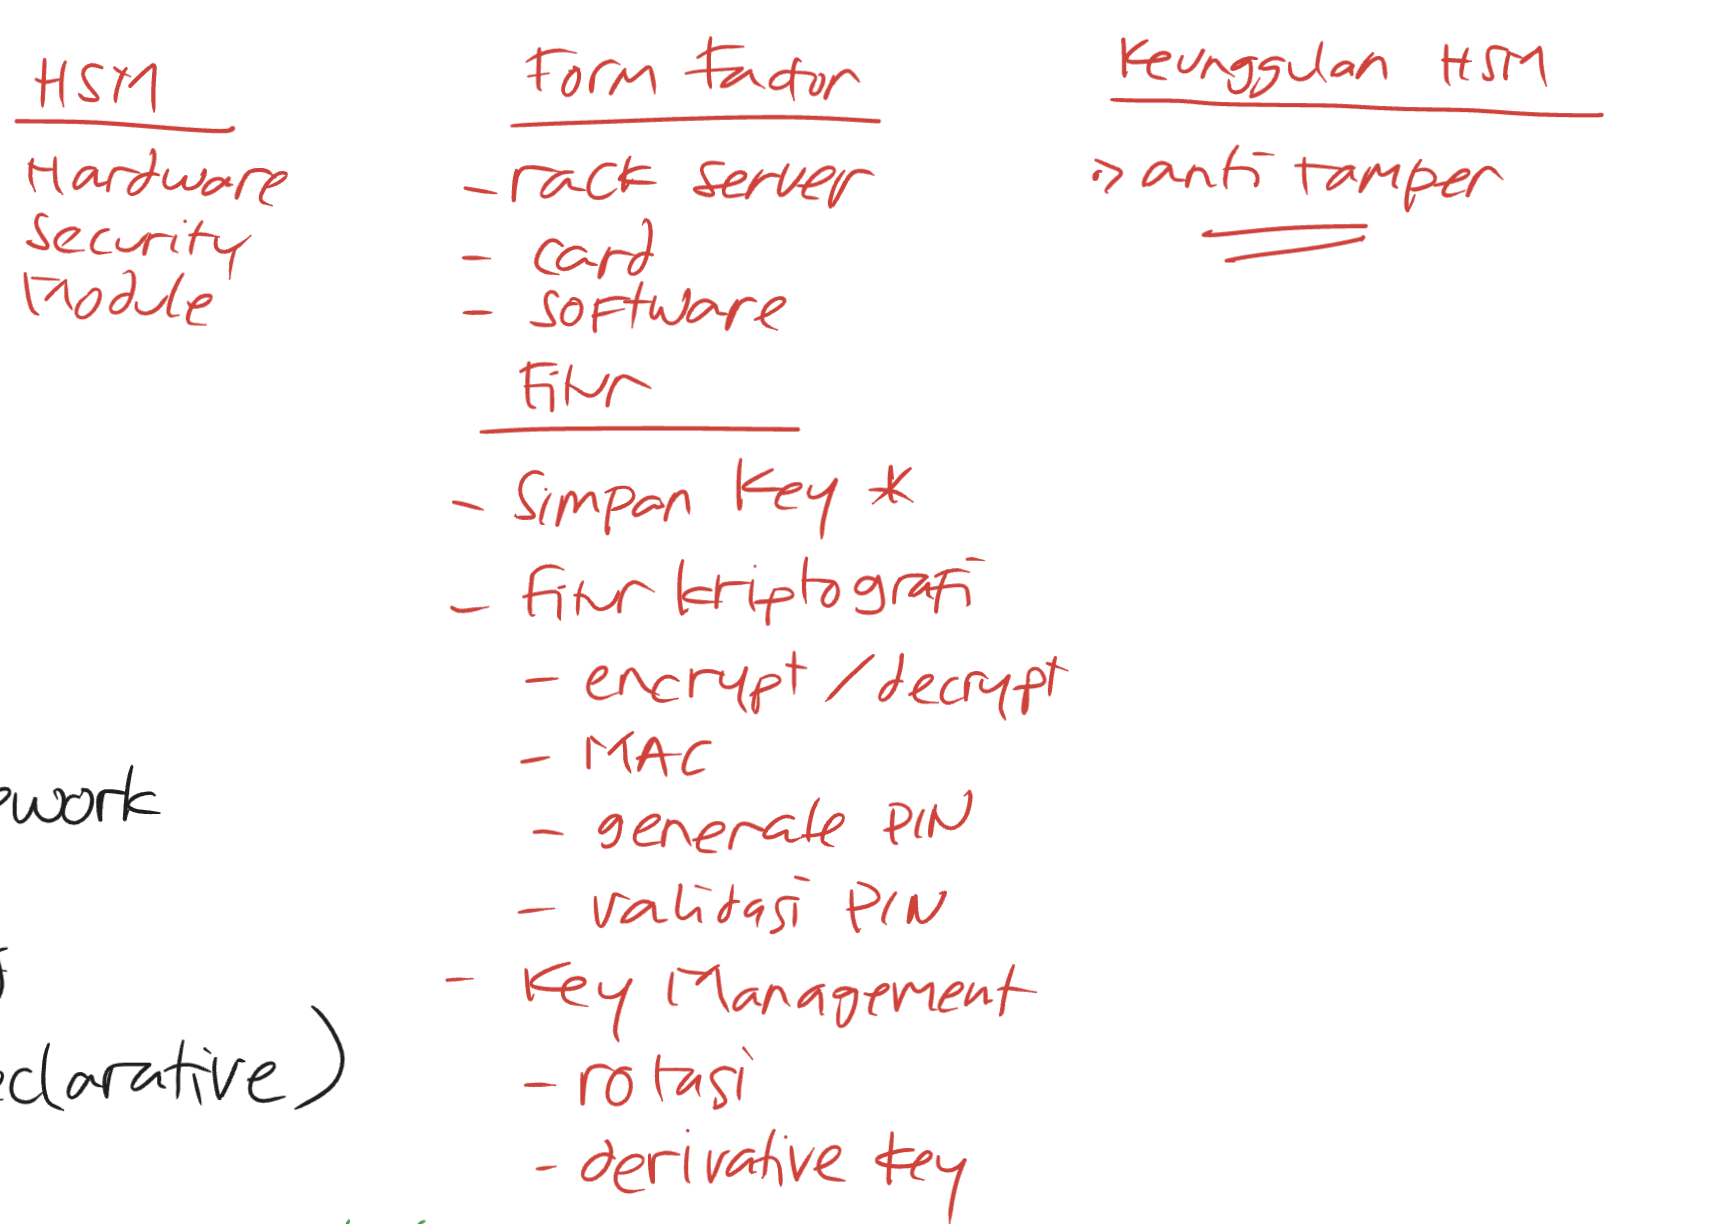 HSM
Hardware
Security
Module
Form Factor
- rack server
- card
- software
Fitur
- Simpan Key *
- Fitur kriptografi
- encrypt / decrypt
- MAC
- generate PIN
- validasi PIN
- Key Management
- rotasi
- derivative key
Keunggulan HSM
> anti tamper
ework
eclarative)